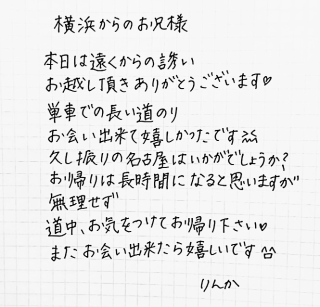 横浜からのお兄様
本日は遠くからの誘い
お越し頂きありがとうございます♡
単車での長い道のり
お会い出来て嬉しかったです^^
久し振りの名古屋はいかがでしょうか?
お帰りは長時間になると思いますが
無理せず
道中、お気をつけてお帰り下さい♡
またお会い出来たら嬉しいです^^
りんか